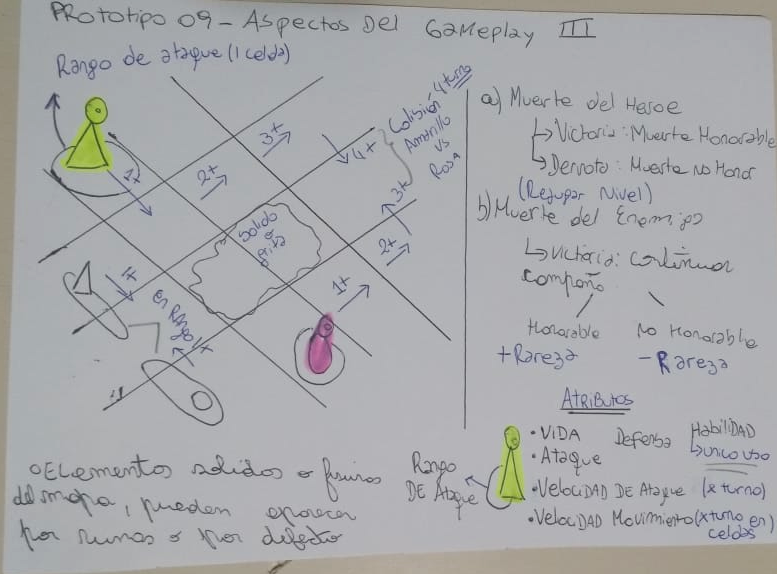 Prototipo 09 - Aspectos Del Gameplay III
Rango de ataque (1 celda)
1t
2t
3t
4t
3t
2t
1t
Colisión 4 turno
Amarillo
vs
Rosa
Solido
o
1t
en Rango 1t
a) Muerte del Heroe
Victoria: Muerte Honorable
Derrota: Muerte No Honor
(Rejugar Nivel)
b) Muerte del Enemigo
Victoria: Continuar
Honorable
No Honorable
+Rareza
-Rareza
Atributos
• VIDA Defensa Habilidad
unico uso
• Ataque
• Velocidad De Ataque (x turno)
• Velocidad Movimiento (x turno en)
celdas
Rango
De Ataque
o Elementos solidos o
del mapa, pueden aparecer
por runas o por defecto